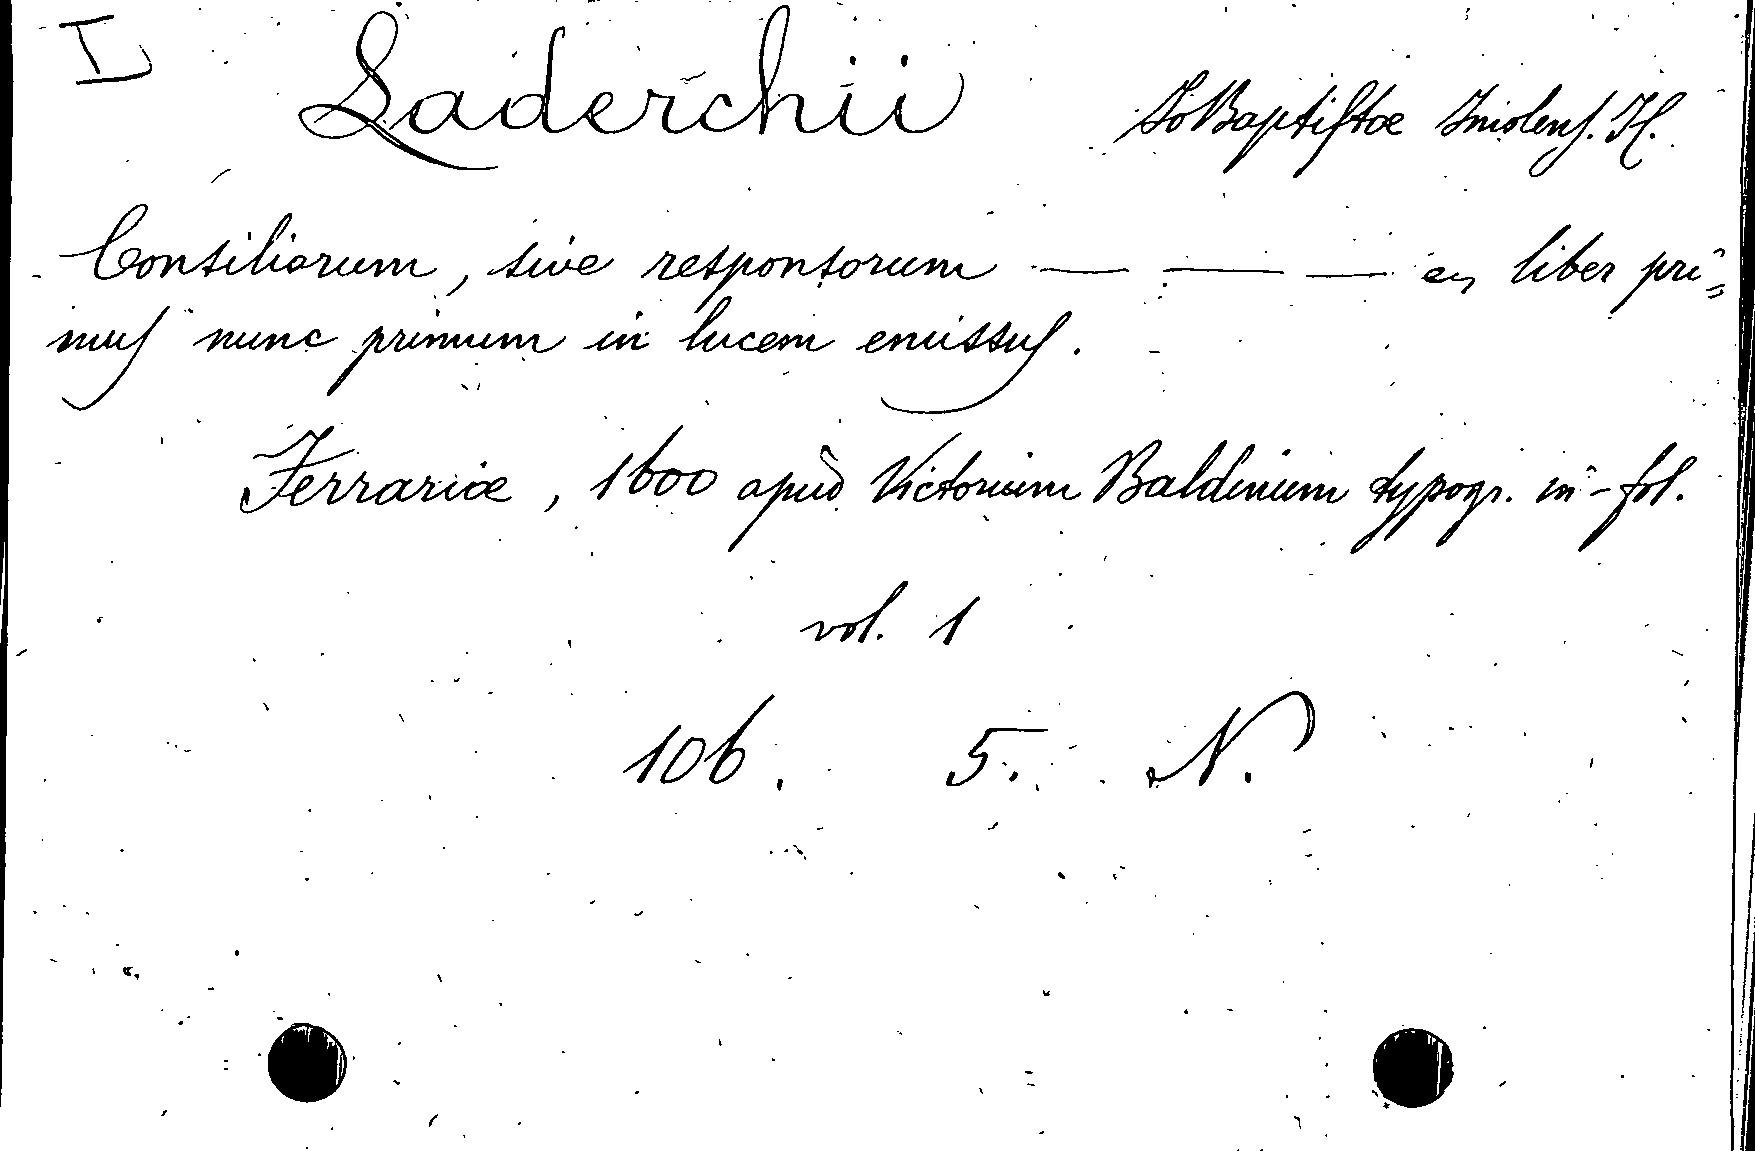 I Laderchii Jo Baptistæ Imolens. H.
Consiliorum, sive responsorum — — — liber pri=
mus nunc primum in lucem emissus.
Ferrariæ, 1600 apud Victorium Baldinium typogr. in-fol.
vol. 1
106. 5. N.